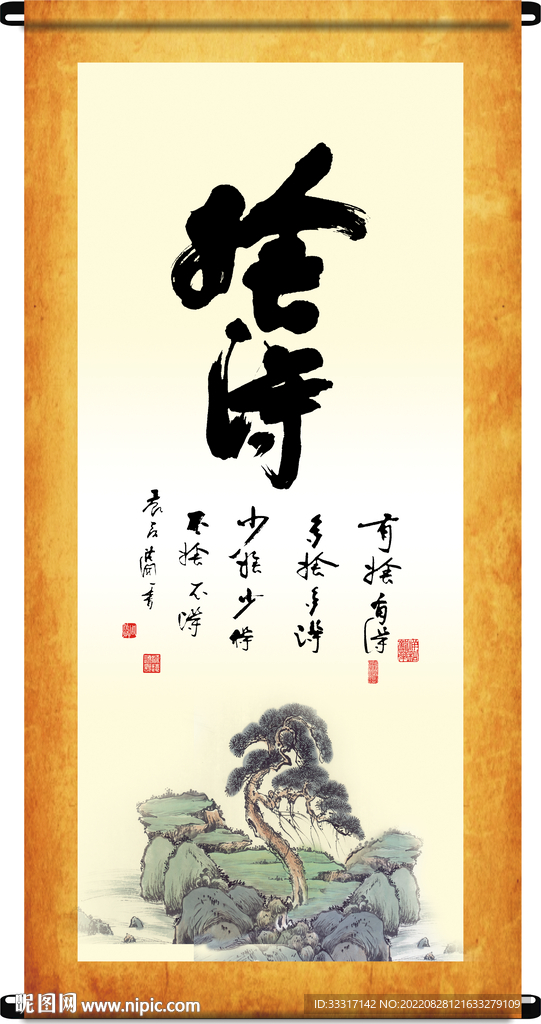 捨得
有捨有得
多捨多得
少捨少得
不捨不得
昵图网 www.nipic.com
ID:33317142 NO:20220828121633279109